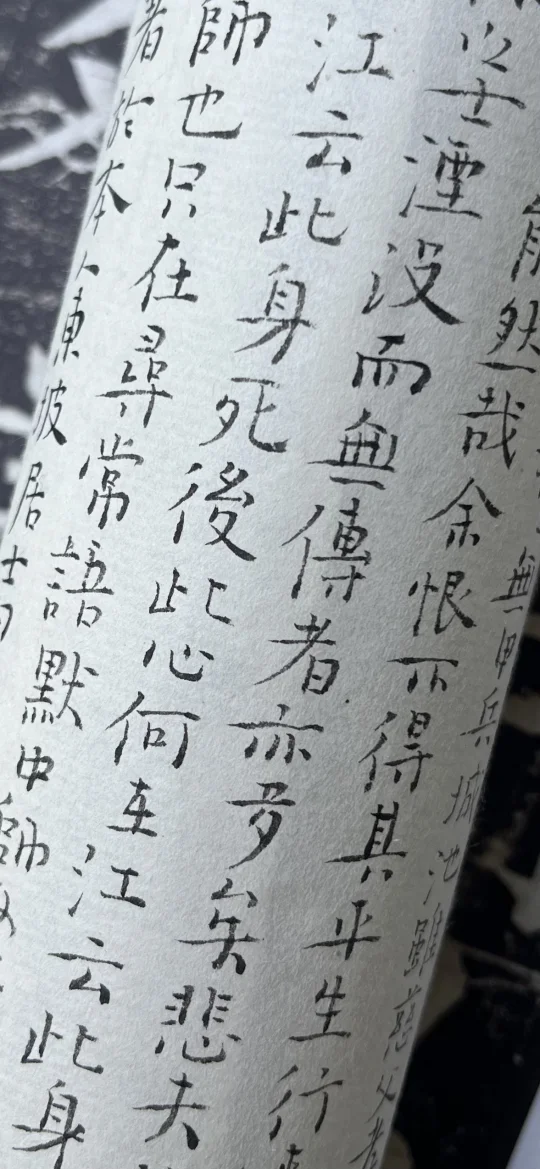 無甲兵城池雖慈父者
能然哉余恨不得其平生行
之士湮没而無傳者亦多矣悲夫
江云此身死後此心何在江云此身
師也只在尋常語默中師
者於本人東坡居士